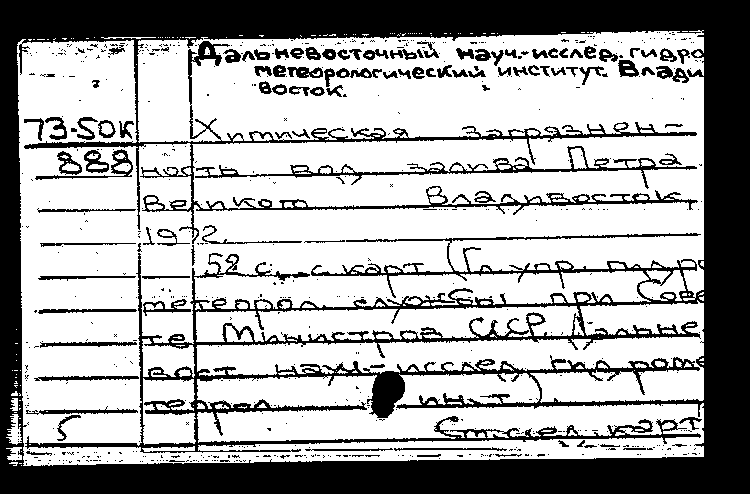 Дальневосточный науч.-исслед. гидро
метеорологический институт. Влади
восток.
73-50к
888
Химическая загрязнен-
ность вод залива Петра
Великого Владивосток,
1972.
52 с., с карт. (Гл. упр. гидро
метеорол. службы при Сове
те Министров СССР. Дальне
вост. науч.-исслед. гидроме
теорол. ин-т).
5
См. след. карт